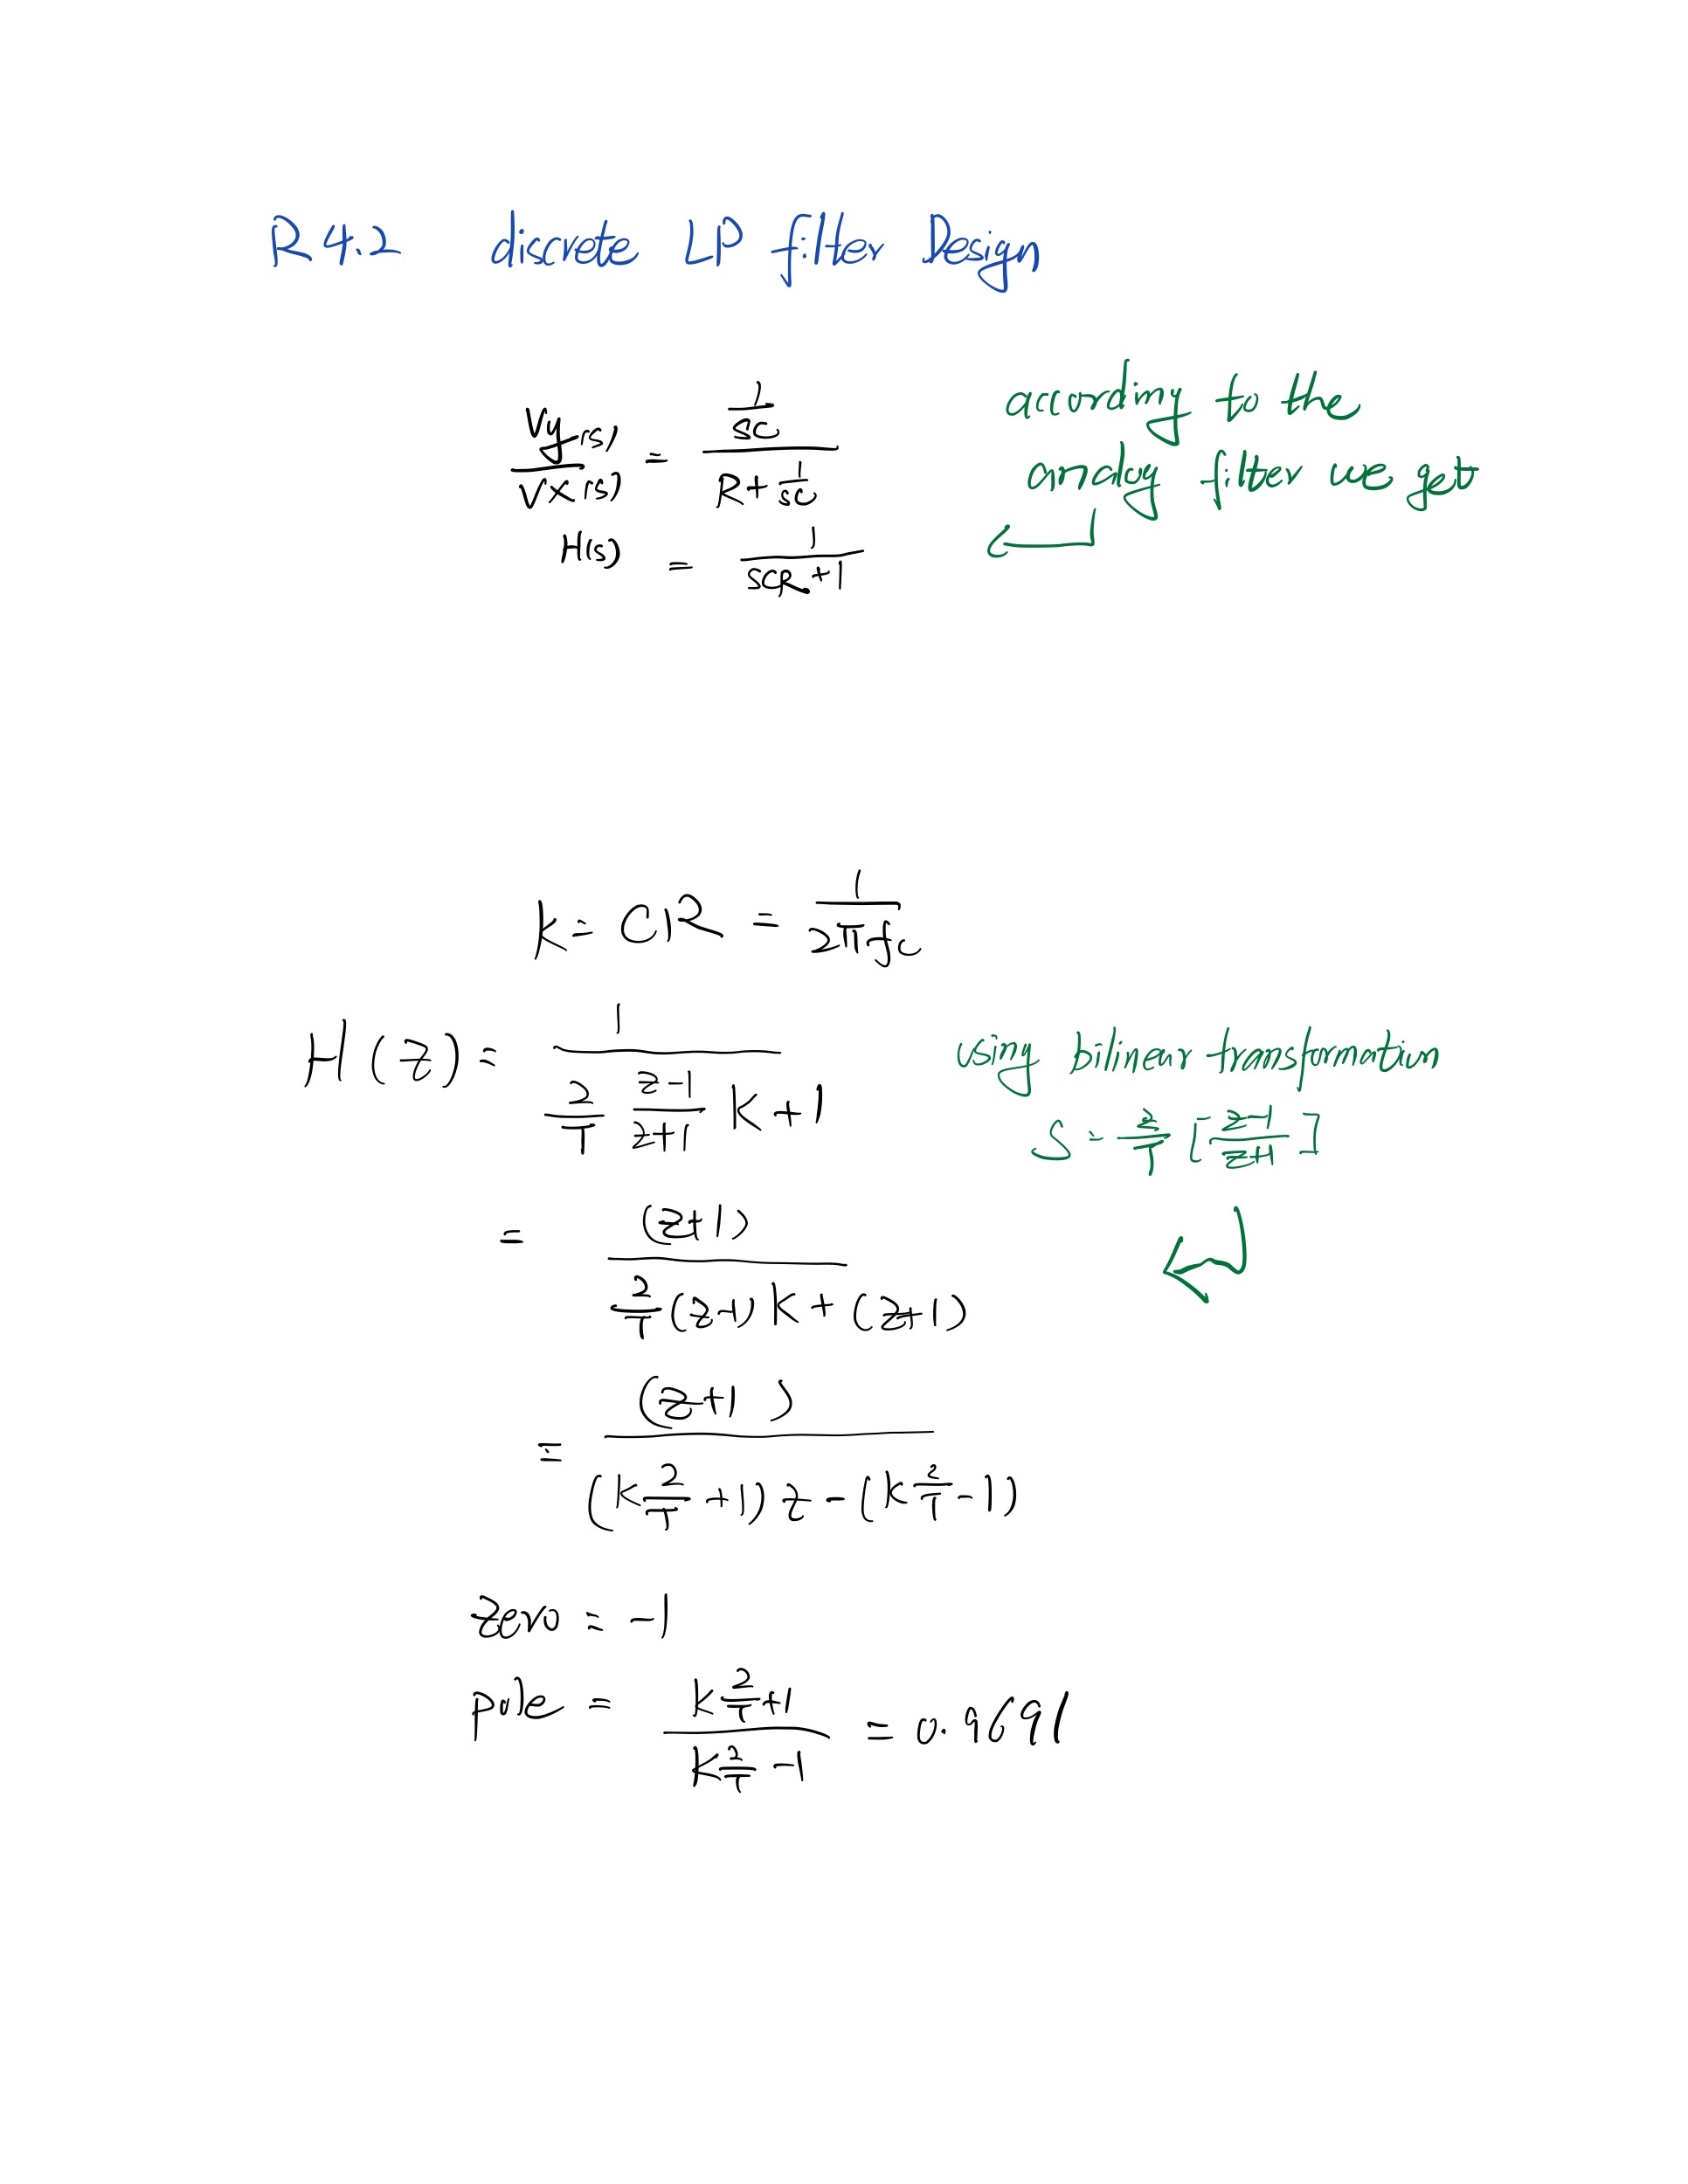 R 4.2 discrete LP filter Design
Vy(s)/Vx(s) = (1/sc)/(R+1/sc)
according to the
analog filter we get
H(s) = 1/(SCR+1)
k = CR = 1/(2πfc)
H(z) = 1/((2/T) (z-1)/(z+1) K+1)
using bilinear transformation
S = 2/T [(z-1)/(z+1)]
= (z+1)/((2/T)(z-1)K+(z+1))
= (z+1)/((K 2/T +1)z-(K 2/T -1))
zero = -1
pole = (K 2/T +1)/(K 2/T -1) = 0.9691